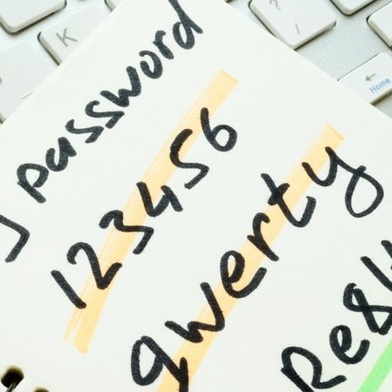 password
123456
qwerty
K
?
/
Home